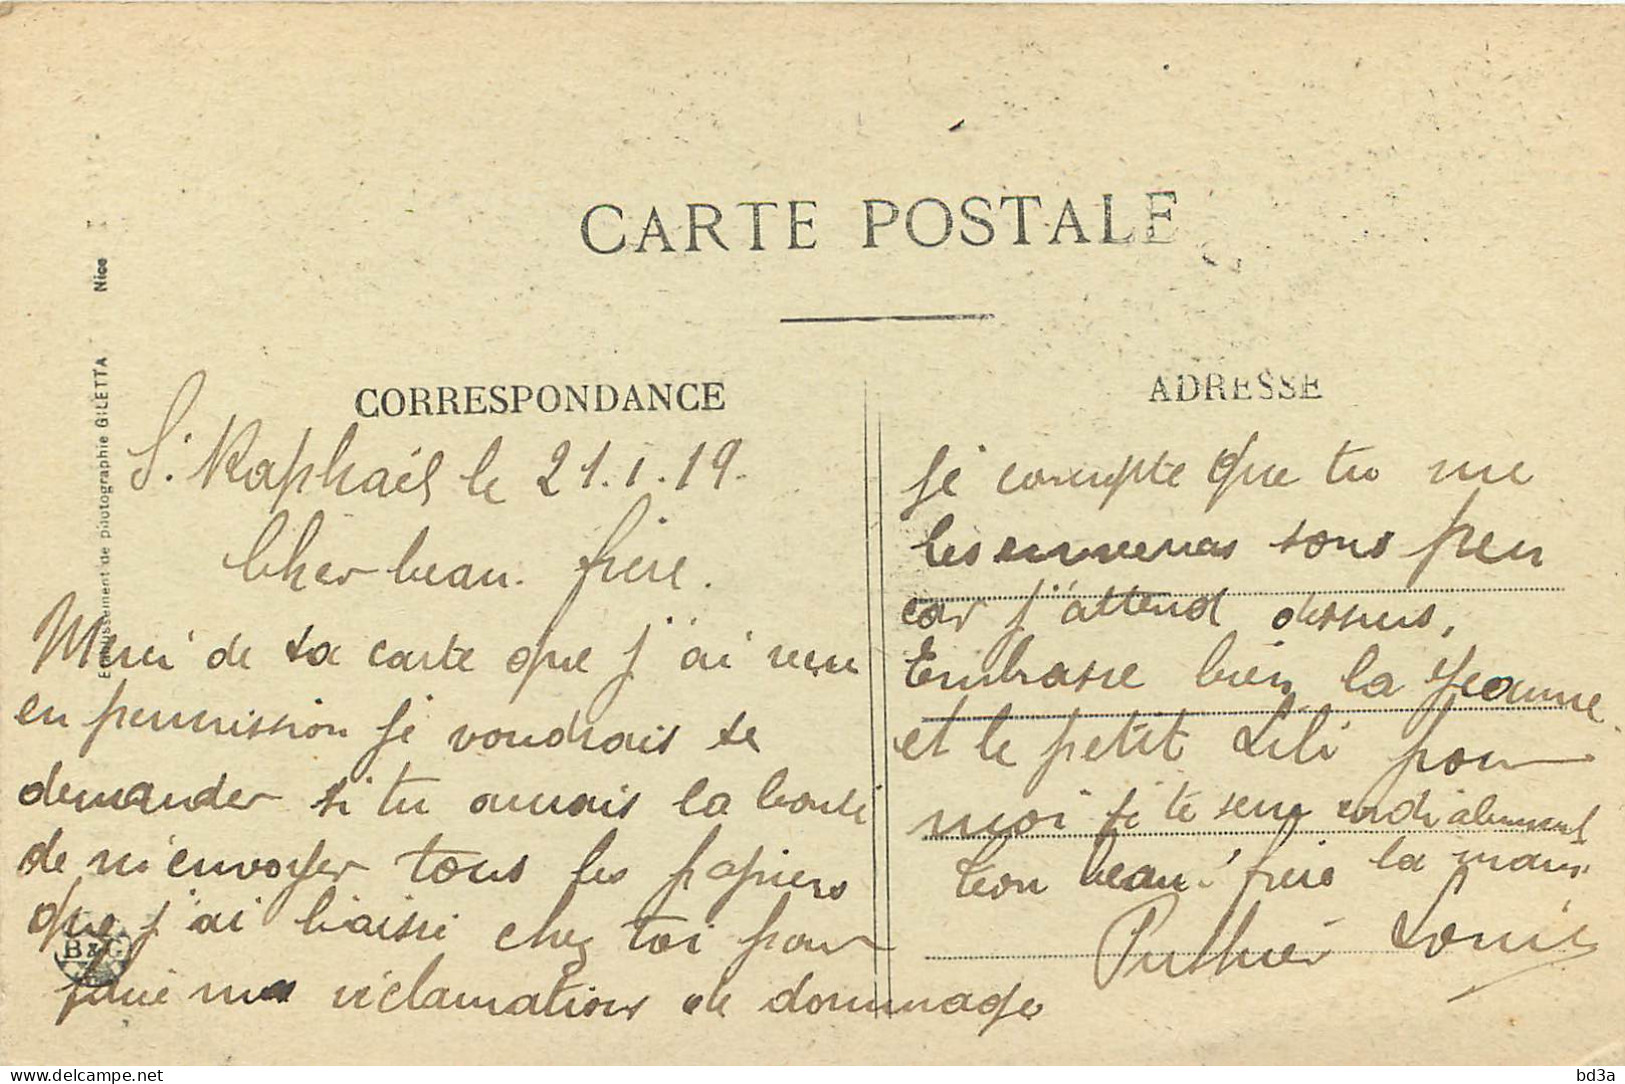 CARTE POSTALE
CORRESPONDANCE
ADRESSE
Établissement de photographie GILETTA Nice
S. Raphaël le 21.1.19.
Cher beau. frère.
Merci de ta carte que j'ai reçu
en permission je voudrais te
demander si tu aurais la bonté
de m'envoyer tous les papiers
que j'ai laissé chez toi pour
faire ma réclamation de dommage
B & C
je compte que tu me
les enverras sous peu
car j'attend dessus,
Embrasse bien la Jeanne
et le petit Lili pour
moi je te serre cordialement
ton beau. frère la main.
Puthier Louis
delcampe.net
bd3a